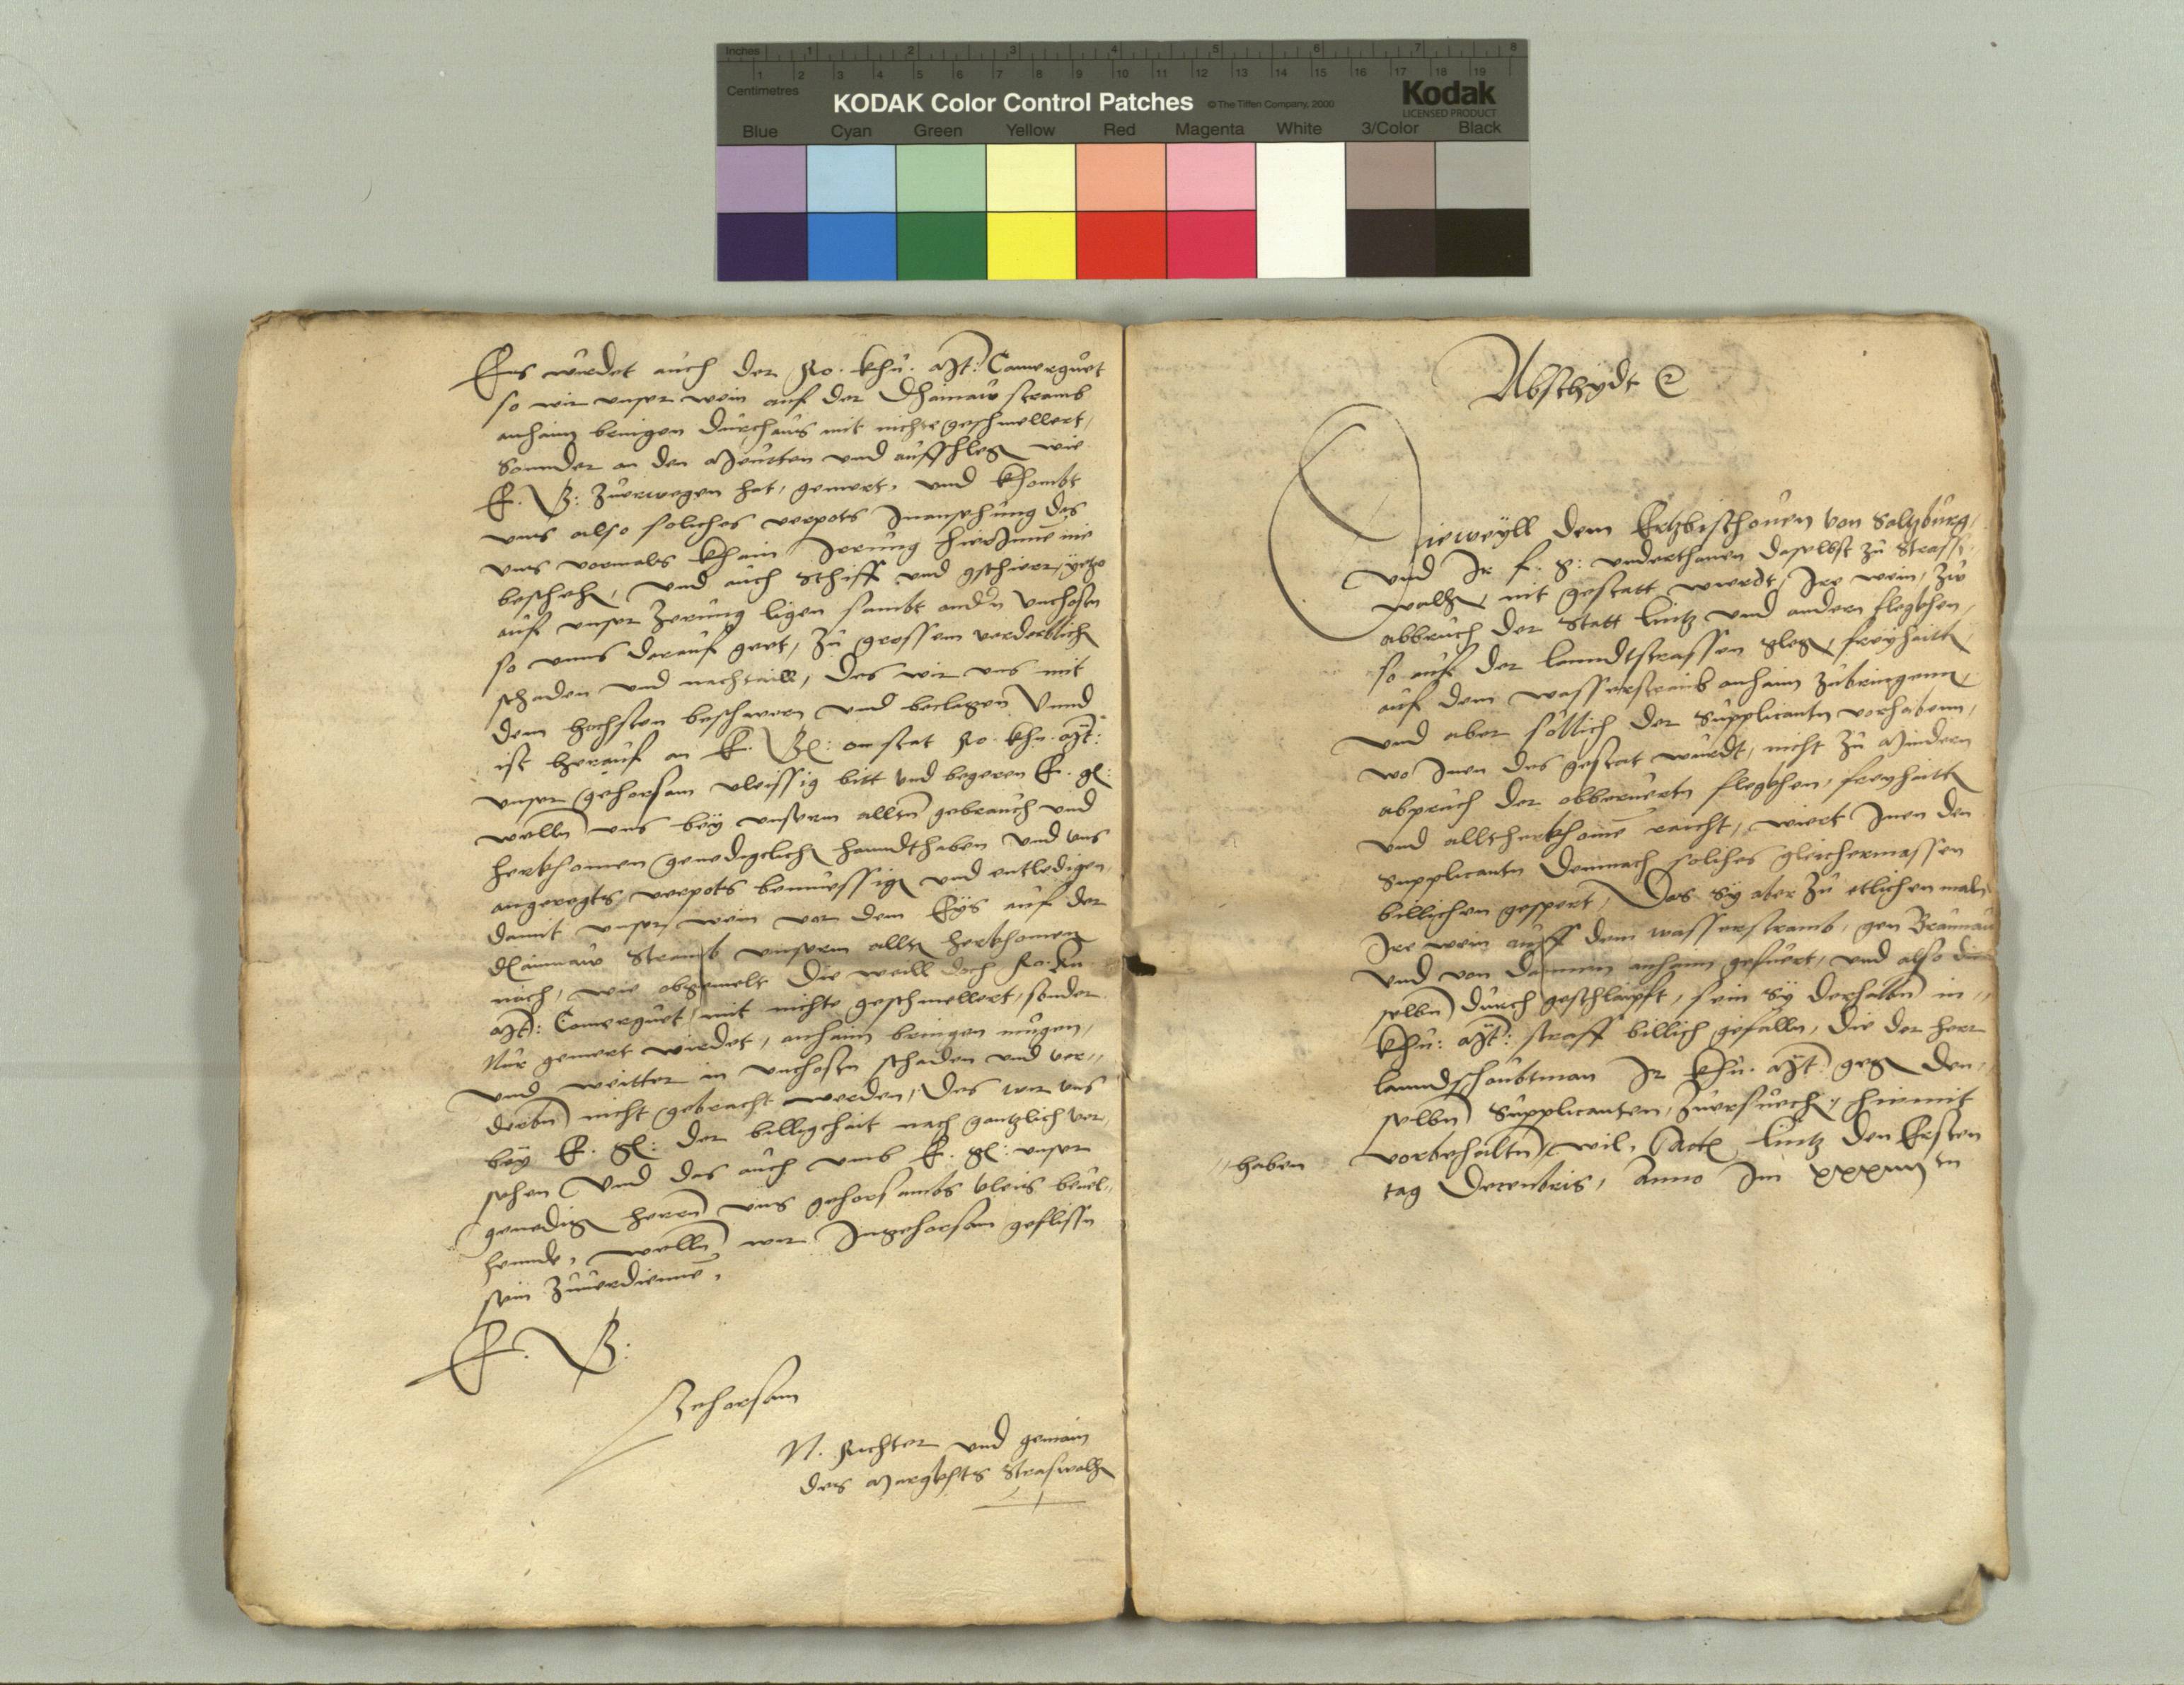 Inches 1 2 3 4 5 6 7 8
1 2 3 4 5 6 7 8 9 10 11 12 13 14 15 16 17 18 19
Centimetres
KODAK Color Control Patches © The Tiffen Company, 2000
Kodak
LICENSED PRODUCT
Blue Cyan Green Yellow Red Magenta White 3/Color Black
Es wirdet auch der Ro. Khu. Mt: Camerguet
so wir unser wein auf der Thainaw stramb
anhaim bringen durchaus mit nichte geschmellert,
Sonnder an den Meutten und aufschleg wie
E. G: zuerwegen hat, gemert, und khombt
uns also soliches verpots Inansehung das
uns vormals khain Irrung hierInne nie
beschehn, und auch Schiff und gschierr yetzo
auf unser Zerung ligen sambt andern unchostn
so unns darauf geet, zu grossem verderblich
schaden und nachtaill, Des wir uns mit
dem hochsten beschwern und beclagen Unnd
ist herauf an E. Gl: anstat Ro. khu. Mt:
unser gehorsam vleissig bitt und begeren E. gl:
welln uns bey unserm alltn gebrauch und
herkhomen genedigclich hanndthaben und uns
angeregts verpots bemuessign und entledigen,
damit unser wein vor dem Eys auf der
Thainaw Stramb unserm alltn herkhomen
nach, wie obgemelt Die weill doch Ro. Ku.
Mt: Camerguet mit nichte geschmellert, sonder
Nur gemert wirdet, anhaim bringen mugen,
und weitter in unchostn schaden und ver,,
derbn nicht gebracht werden, Des wir uns
bey E. gl: der billigchait nach gantzlich ver,
sehen Und das auch umb E. gl: unser
genedign herrn uns gehorsambs vleis bevel,,
hennde, welln wir Ingehorsam geflissn
sein zuverdienne,
E. G:
Gehorsam
N. Richter und gemain
des Margkhts Straswalhn
Abschydt
Dieweyll dem Ertzbischouen von Saltzburg,
und Ir f. g: underthanen daselbst zu Strass,
walhn, nit gestatt wirdt, Ire wein, zu
abbruch der Statt Lintz und andern flegkhen,
so auf der lanndtstrassen gelegn, freyhaitn,
auf dem wasserstramb anhaim zubringenn,
und aber sollich der Supplicantn vorhabenn,
wo Inen das gestat wurdt, nicht zu Mindern
abpruch der obberuertn flegkhen, freyhaitn
und alltherkhome raicht, wiert Inen den
Supplicantn demnach solches gleichermassen
billichen gespert, Das Sy aber zu etlichen maln
Ire wein auff dem wasserstramb, gen Braunau
und von dannen anhaim gefuert, und also die,,
selbn durch geschlaipft, sein Sy derhalbn in,,
khu: Mt: straff billich gefalln, die der herr
lanndshaubtman Ir khu. Mt: gegn den,,
selbn Supplicanten, zuersuechn, hiemit
vorbehaltn ,,haben wil, Act Lintz den Ersten
tag Decembris, Anno Im xxxiiii tn
,,haben